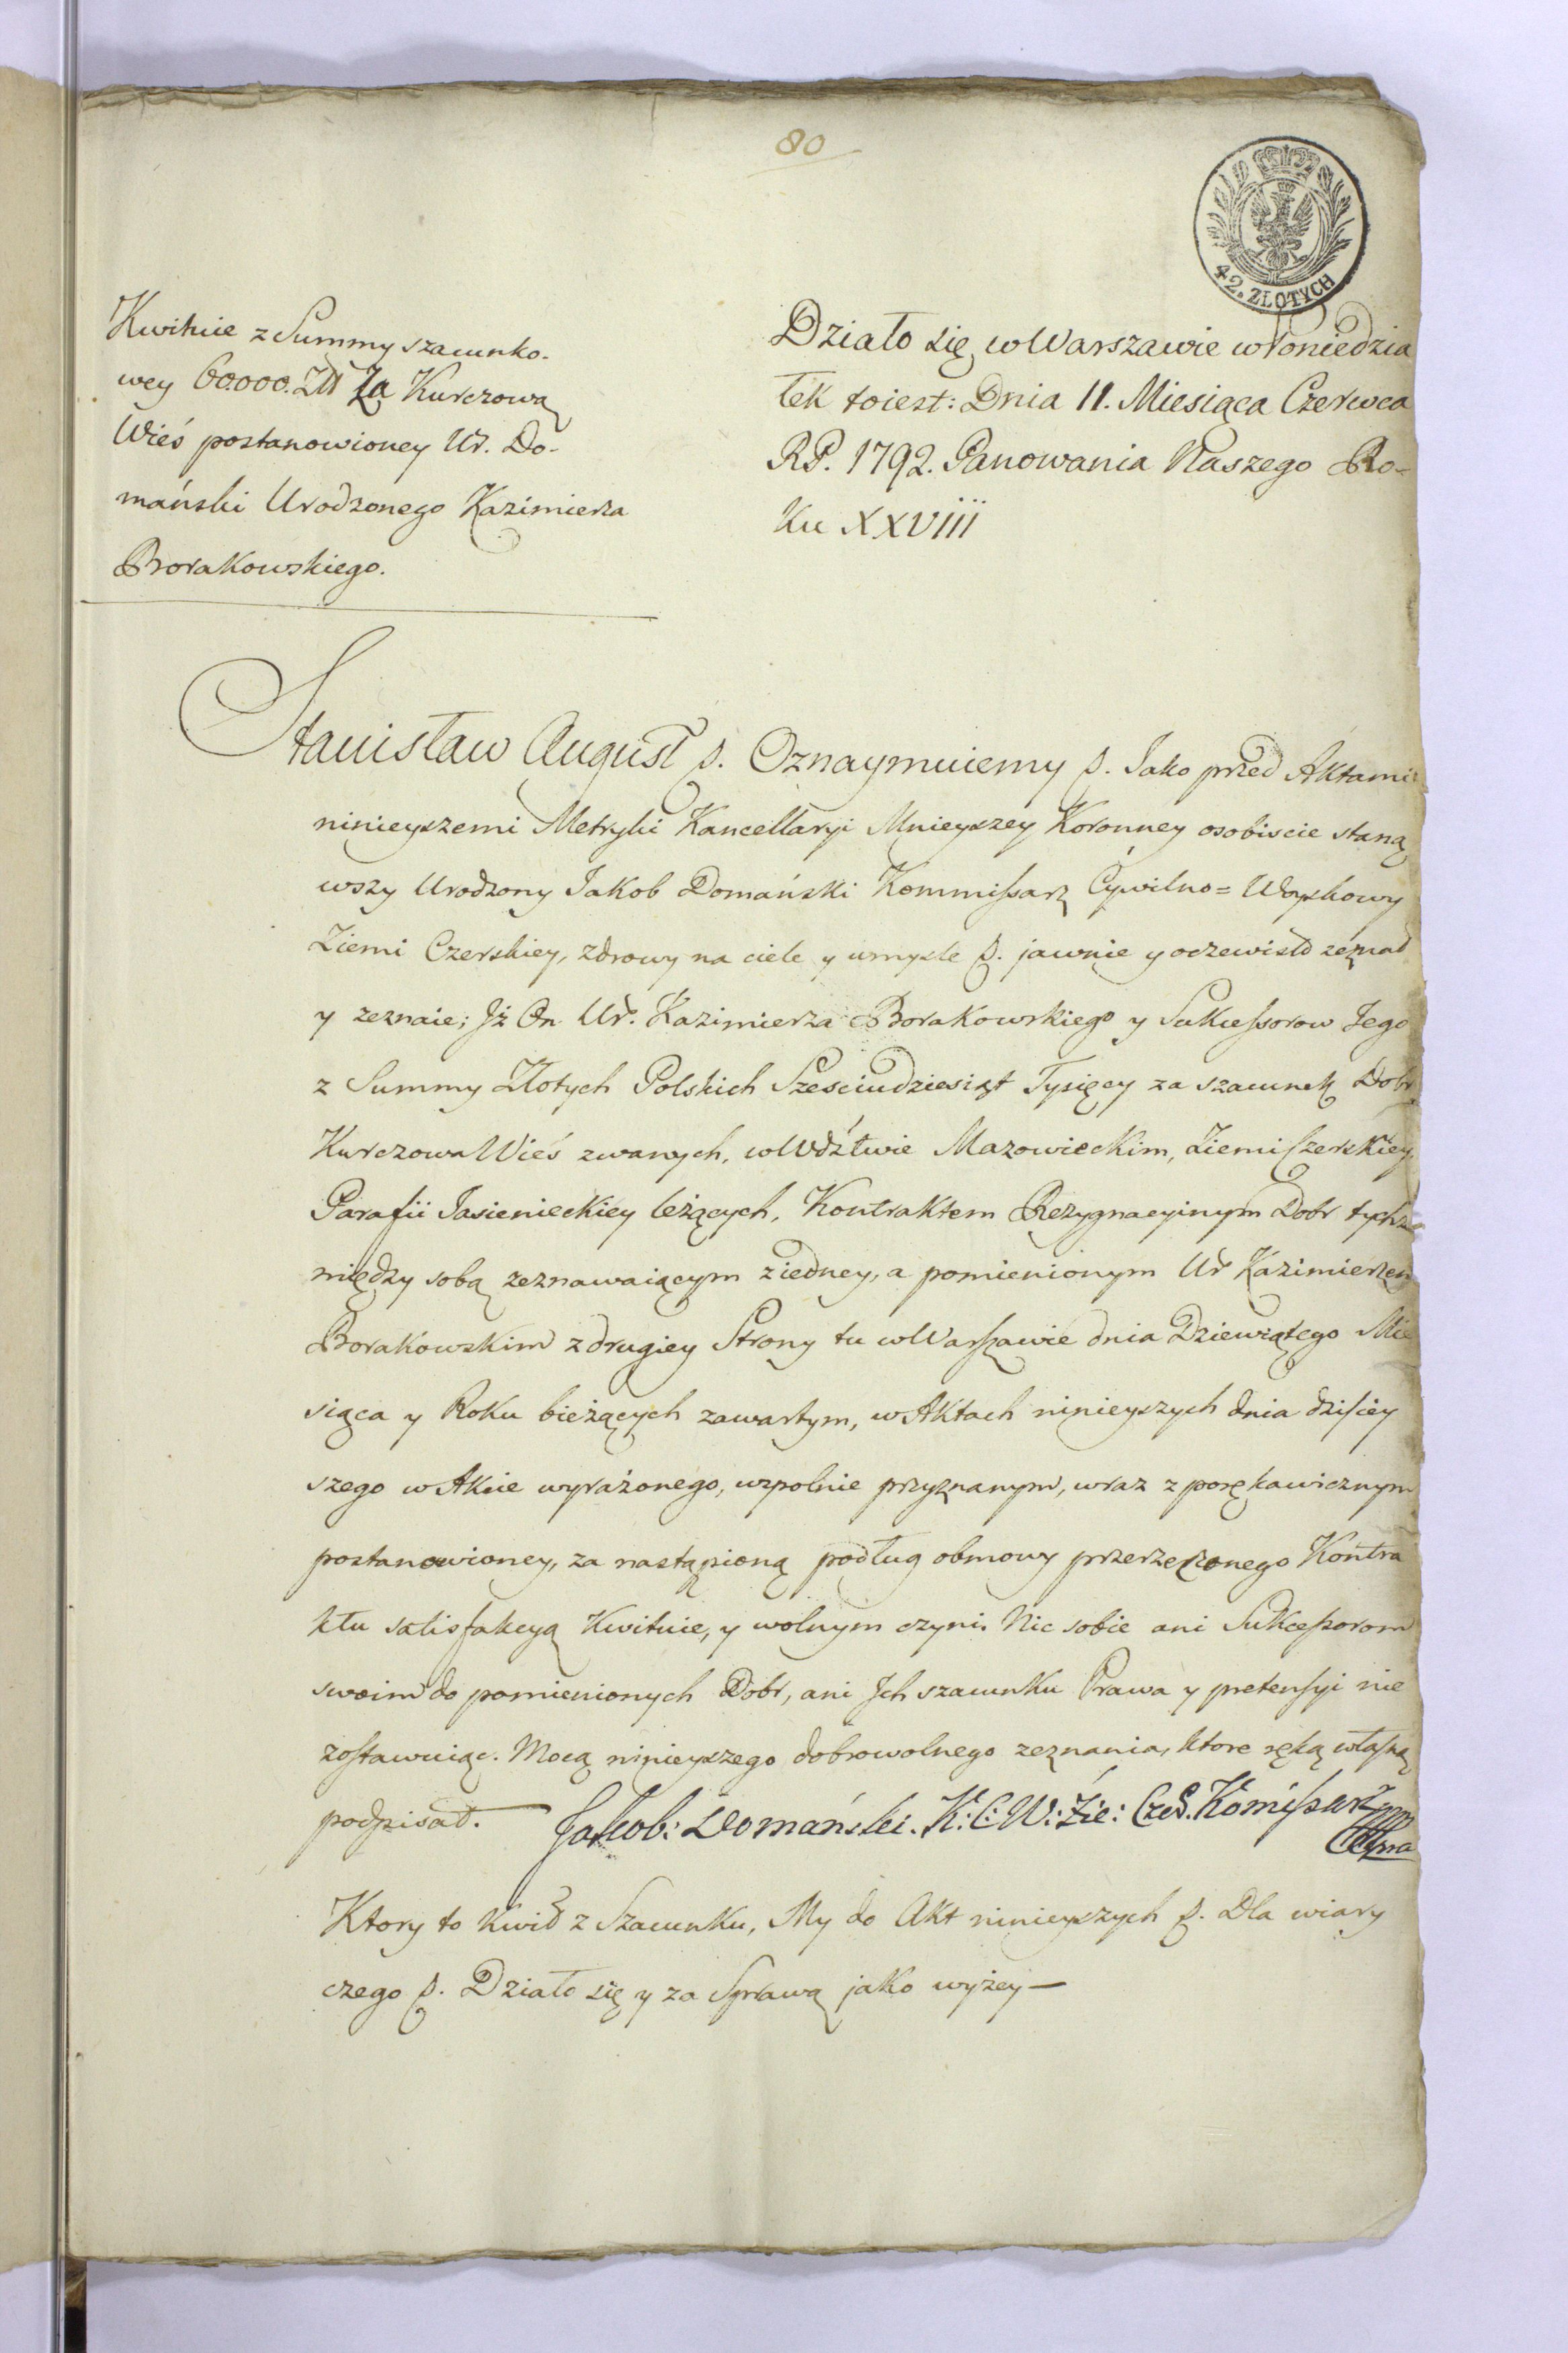 80
42. ZŁOTYCH
Kwituie z Summy szacunko-
wey 60.000. Złł Za Kurczową
Wieś postanowioney Ur. Do-
mański Urodzonego Kazimierza
Borakowskiego.
Działo się w Warszawie w Poniedzia
łek toiest: Dnia 11. Miesiąca Czerwca
RP. 1792. Panowania Naszego Ro-
ku XXVIII
Stanisław August p. Oznaymuiemy p. Jako przed Aktami
ninieyszemi Metryki Kancellaryi Mnieyszey Koronney osobiscie staną
wszy Urodzony Jakob Domański Kommissarz Cywilno=Woyskowy
Ziemi Czerskiey, zdrowy na ciele y umysle p. jawnie y oczewisto zeznał
y zeznaie; Jż On Ur. Kazimierza Borakowskiego y Sukcessorow Jego
z Summy Złotych Polskich Szesciudziesiąt Tysięcy za szacunek Dobr
Kurczowa Wieś zwanych, w Wdźtwie Mazowieckim, Ziemi Czerskiey,
Parafii Jasienieckiey leżących, Kontraktem Rezygnacyinym Dobr tychże
między sobą zeznawaiącym z iedney, a pomienionym Ur Kazimierzem
Borakowskim z drugiey Strony tu w Warszawie dnia Dziewiątego Mie
siąca y Roku bieżących zawartym, w Aktach ninieyszych dnia dzisiey
szego w Akcie wyrażonego, wspolnie przyznanym, wraz z porękawicznym
postanowioney, za nastąpioną podług obmowy przerzeczonego Kontra
ktu satisfakcyą Kwituie, y wolnym czyni. Nic sobie ani Sukcessorom
swoim do pomienionych Dobr, ani Jch szacunku Prawa y pretensyi nie
zostawuiąc. Mocą ninieyszego dobrowolnego zeznania, ktore ręką własną
podpisał. Jakob: Domański. K: C: W: Zie: Czer. Komissarz
Ktory to kwit z Szacunku, My do Akt ninieyszych p. Dla wiary
czego p. Działo się y za Sprawą jako wyżey —